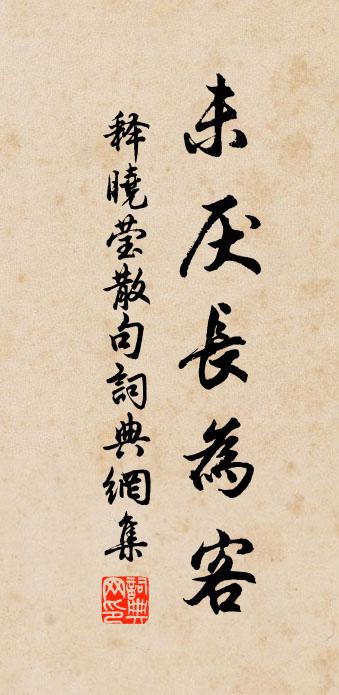 未厌長為客
释曉莹散句詞典網集
詞典网印